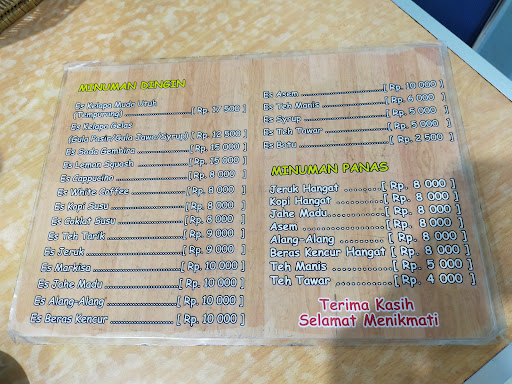 MINUMAN DINGIN
Es Kelapa Muda Utuh
(Tempurung) [ Rp. 17 500 ]
Es Kelapa Gelas
(Gula Pasir/Gula Jawa/Syrup) [ Rp. 12 500 ]
Es Soda Gembira [ Rp. 15 000 ]
Es Lemon Squash [ Rp. 15 000 ]
Es Cappucino [ Rp. 8 000 ]
Es White Coffee [ Rp. 8 000 ]
Es Kopi Susu [ Rp. 8 000 ]
Es Coklat Susu [ Rp. 8 000 ]
Es Teh Tarik [ Rp. 9 000 ]
Es Jeruk [ Rp. 9 000 ]
Es Markisa [ Rp. 10 000 ]
Es Jahe Madu [ Rp. 10 000 ]
Es Alang-Alang [ Rp. 10 000 ]
Es Beras Kencur [ Rp. 10 000 ]
Es Asem [ Rp. 10 000 ]
Es Teh Manis [ Rp. 6 000 ]
Es Syrup [ Rp. 5 000 ]
Es Teh Tawar [ Rp. 5 000 ]
Es Batu [ Rp. 2 500 ]
MINUMAN PANAS
Jeruk Hangat [ Rp. 8 000 ]
Kopi Hangat [ Rp. 8 000 ]
Jahe Madu [ Rp. 8 000 ]
Asem [ Rp. 8 000 ]
Alang-Alang [ Rp. 8 000 ]
Beras Kencur Hangat [ Rp. 8 000 ]
Teh Manis [ Rp. 5 000 ]
Teh Tawar [ Rp. 4 000 ]
Terima Kasih
Selamat Menikmati